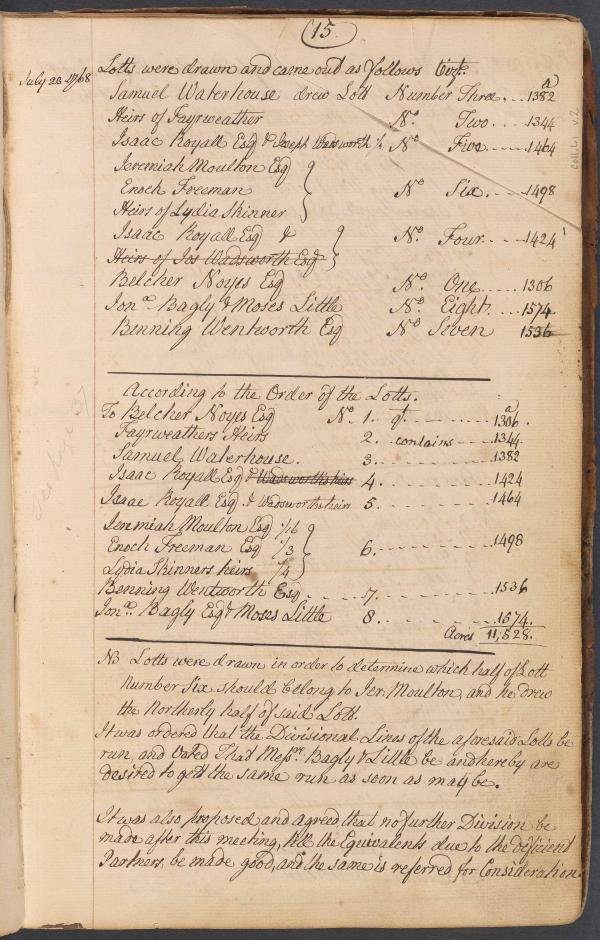 15.
July 23 1768
Lotts were drawn and came out as follows Vizt.
Samuel Waterhouse drew Lott Number Three ... 1382 a
Heirs of Fayrweather No. Two .... 1344
Isaac Royall Esq & Joseph Wadsworth No Five .... 1464
Jeremiah Moulton Esq
Enoch Freeman No Six ..... 1498
Heirs of Lydia Skinner
Isaac Royall Esq & No. Four .... 1424
Heirs of Jos Wadsworth Esq
Belcher Noyes Esq No. One ..... 1306
Jona. Bagly & Moses Little No. Eight. .... 1574
Benning Wentworth Esq No Seven 1536
According to the Order of the Lotts.
To Belcher Noyes Esq No. 1. qt. .......... 1306. a
Fayrweathers Heirs 2. contains .... 1344
Samuel Waterhouse. 3. .......... 1382
Isaac Royall Esq & Wadsworths heirs 4. .......... 1424
Isaac Royall Esq. & Wadsworths heirs 5. .......... 1464
Jeremiah Moulton Esq
Enoch Freeman Esq 1/3 6. .......... 1498
Lydia Skinners heirs 1/4
Benning Wentworth Esq ..... 7. .......... 1536
Jona. Bagly Esq & Moses Little 8. .......... 1574.
Acres 11,528.
NB Lotts were drawn in order to determine which half of Lott
Number Six should belong to Jer: Moulton, and he drew
the Northerly half of said Lott.
It was ordered that the Divisional Lines of the aforesaid Lotts be
run, and Voted That Messrs. Bagly & Little be and hereby are
desired to gett the same run as soon as may be.
It was also proposed and agreed that no further Division be
made after this meeting, till the Equivalents due to the deficient
Partners, be made good, and the same is referred for Consideration.
Coll. L. v. 2